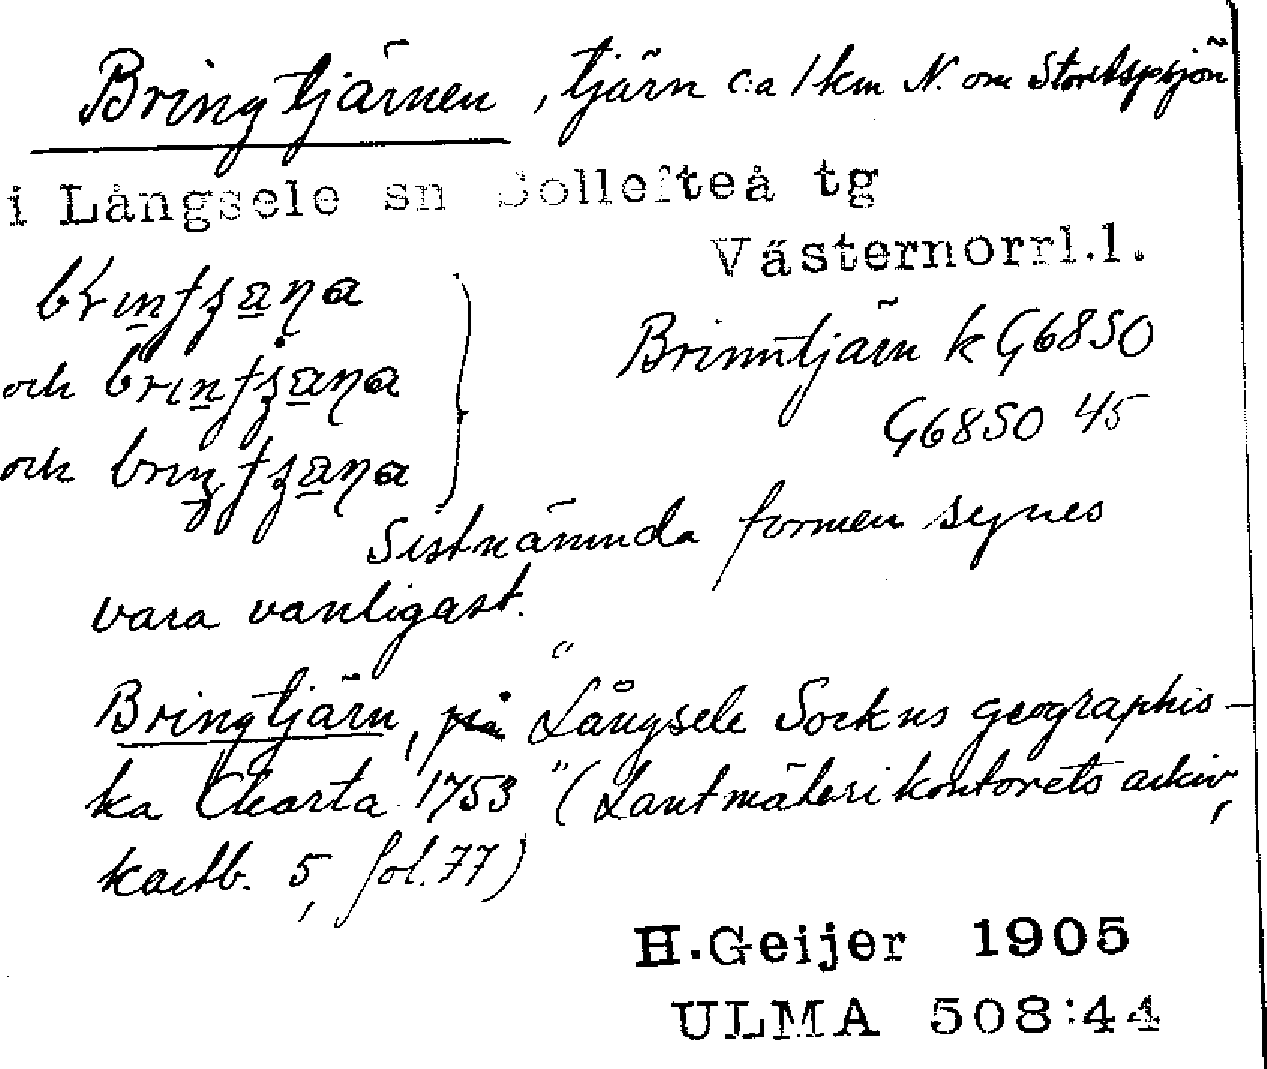 Bringtjärnen, tjärn c:a 1 km N. om
i Långsele sn Sollefteå tg
Västernorrl.l.
Brinntjärn k G6850
och
G6850 45
och
Sistnämnda formen synes
vara vanligast.
Bringtjärn, på "Långsele Sockns geographis-
ka Charta 1753" (Lantmäterikontorets arkiv,
kartb. 5, fol. 77)
H.Geijer 1905
ULMA 508:44